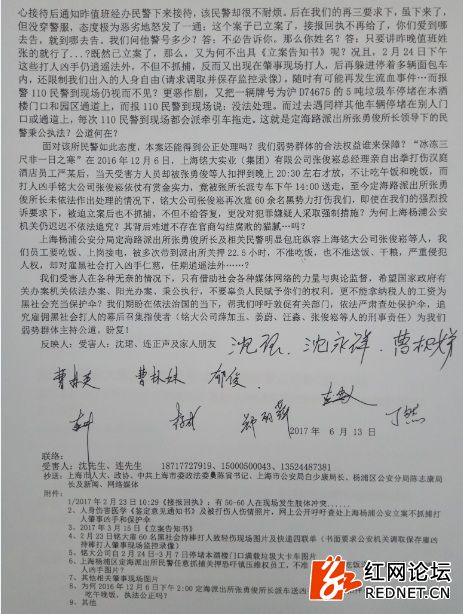 心接待后通知昨值班经办民警下来接待，该民警却很不耐烦。后在我们的再三要求下，虽下来了，
但没穿警服，态度极为恶劣地怒发了一通：这个案子已立案了，接报回执不再给了，你们爱到哪
去告，就到哪去告。我们问他警号多少？答：不必告诉你。那么你姓名？答：只要讲昨晚值班姓
张的就行了…？既然已立案了，那么，又为何不出具《立案告知书》呢？况且，2月24日下午
这些打人凶手仍逍遥法外，不但没有抓捕，反而又出现在肇事现场打人，后再躲进停着多辆面包车
内，还限制我们出入的人身自由(请求调取并保存监控录像)，随时有可能再发生流血事件…而报
警110民警到现场仍视而不见？更恶作剧，又把一辆牌号为沪D74675的5吨垃圾车停堵在本酒
楼门口和园区通道上，而报110民警到现场说：没法处理。而过去遇同样其他车辆停堵在别人门
口或通道上，每次110民警到现场都会派牵引车拖走。这就是定海路派出所张勇俊所长领导下的民
警秉公执法？公道何在？
面对该所民警如此态度，本案还能得到公正处理吗？我们弱势群体的合法权益谁来保障？“冰冻三
尺非一日之寒”在2016年12月6日，上海铭大实业（集团）有限公司张俊崧总经理亲自出拳打伤汉庭
酒店员工严某后，当天受害方人员却被张勇俊等人扣押到晚上20:30左右才放，不让吃午饭和晚饭，而
打人凶手铭大公司张俊崧依仗有赏金实力，竟被张所长派专车下午14:00送走，至今定海路派出所张勇
俊所长未依法作出处理的情况下，铭大公司张俊崧再次雇60余名黑势力打伤我们，即使在我们的强烈投
诉要求下，被迫立案后也不抓捕，但不给答复，更没对犯罪嫌疑人采取强制措施？为何上海杨浦公安
机关仍迟迟不依法追究？其背后难道不存在官商勾结腐败的猫腻…吗？
上海杨浦公安分局定海路派出所张勇俊所长及相关民警明显包庇纵容上海铭大公司张俊崧等人，我
们员工要吃饭、上岗接电，被多次带到派出所关押22.5小时，不准吃饭，也不准送饭、干粮，严重侵犯
人权，却对雇黑社会打人凶手仁慈，任期逍遥法外…？
我们受害人在各种无奈的情况下，只有借助社会各种媒体网络的力量与舆论监督，希望国家政府有
关办案机关依法办案、阳光办案，秉公执行，不要辜负人民赋予你们的权利，更不能拿纳税人的工资为
黑社会充当保护伞？我们期盼在依法治国的当下，帮我们呼吁敦促有关部门，依法严肃查处保护伞，追
究雇佣黑社会打人的幕后召集指使者（铭大公司薛加玉、姜蔚、汪淼、张俊崧等人的刑事责任）为我们
弱势群体主持公道，盼复！
反映人：受害人：沈珺、连正声及家人朋友
沈永祥
郁俊
丁然
2017 年 6 月 13 日
联络：
受害人：沈先生、连先生 18717727919、15000500043、13524487381
抄送：上海市人大、政协、中共上海市委政法委员陈寅书记、上海市公安局白少康局长、杨浦区公安分局陈志康局
长及新闻、网络媒体
附件：
1/2017年2月23日10:29《接报回执》：有50-60人在现场发生肢体冲突……
2、人身伤害医学《鉴定意见通知书》及被打伤人伤情照片，网上公开呼吁查处上海杨浦公安立案不抓捕打
人肇事凶手和保护伞
3、2017年3月15日《立案告知书》
4、2月23日铭大雇60名黑社会持棒打人致轻伤现场图片及快递四联单（书面要求公安机关调取保存雇凶
持棒打人肇事现场监控录像）
5、铭大公司自2月24日-3月7日停堵本酒楼门口满载垃圾大卡车图片
6、上海杨浦区定海派出所民警任意抓捕关押恐吓镇压维权员工，不准
人凶手图片？
7、其他相关肇事现场图片
8、为何2016年12月6日下午2:00定海派出所张勇俊所长派专车送凶
吃午晚饭，执法公正吗？
9、其他
红网论坛
REDNET.CN